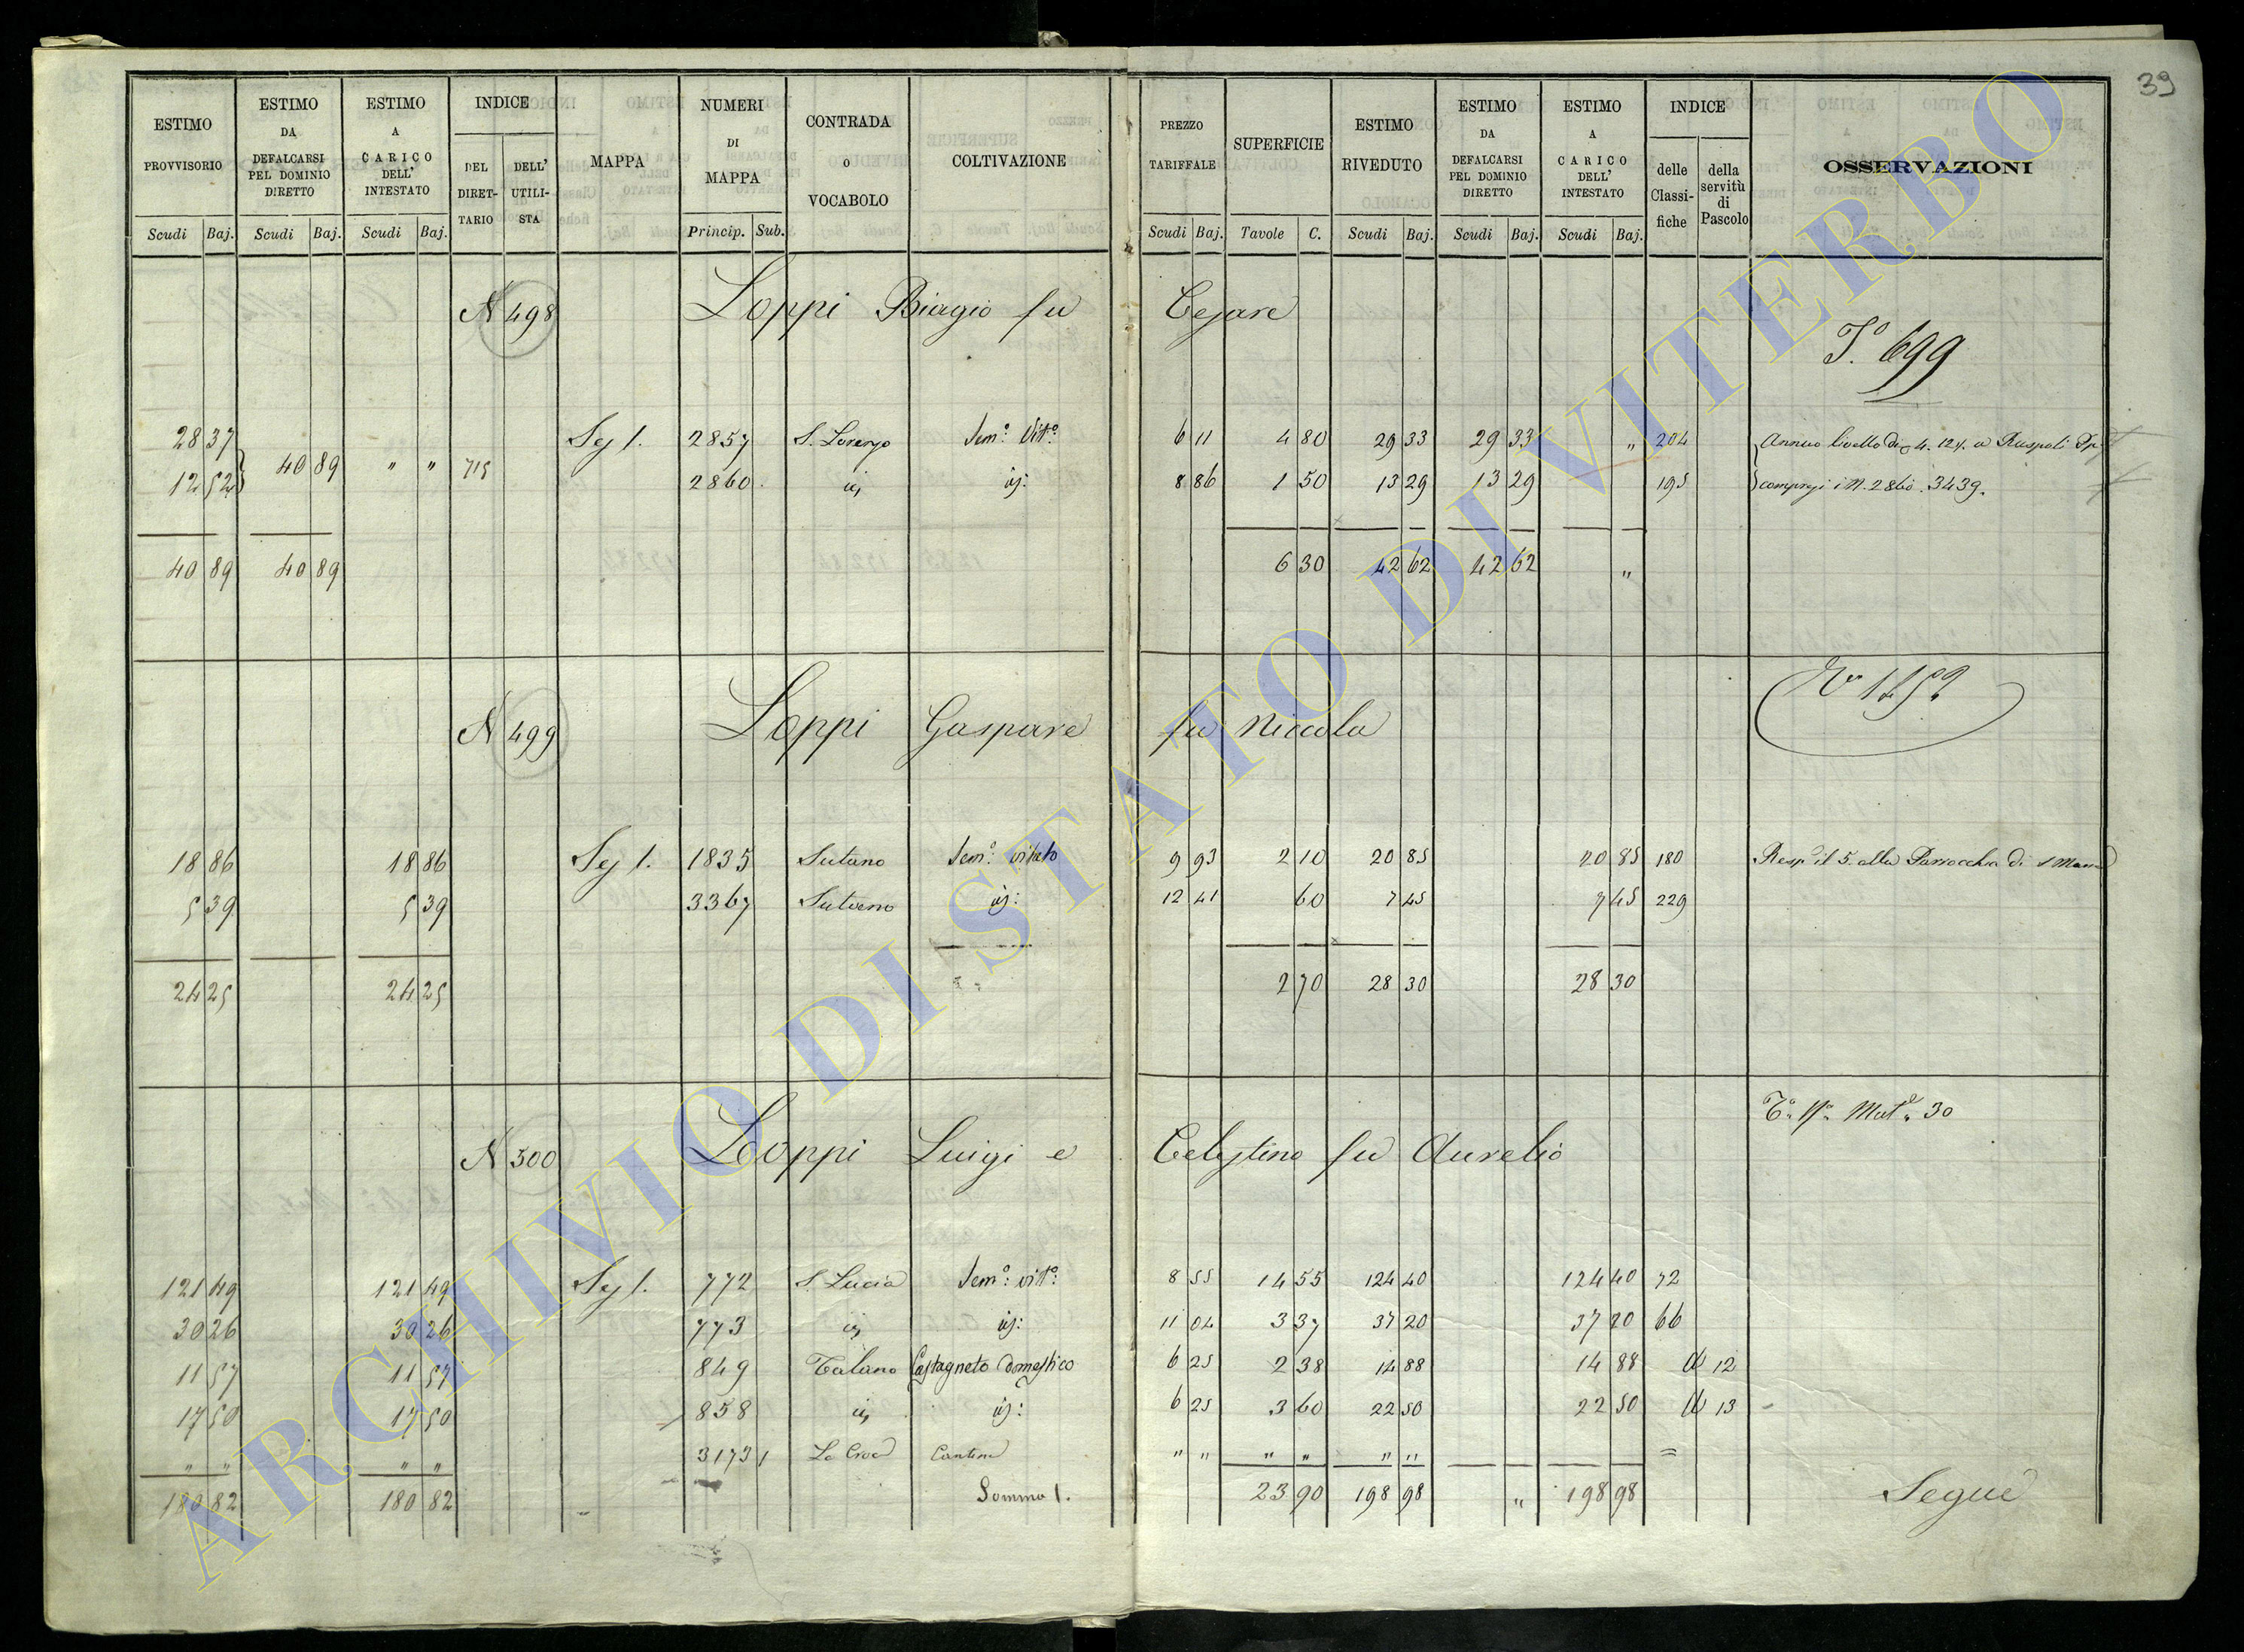 39
ESTIMO PROVVISORIO | ESTIMO DA DEFALCARSI PEL DOMINIO DIRETTO | ESTIMO A CARICO DELL' INTESTATO | INDICE DEL DIRETTARIO | DELL' UTILISTA | MAPPA | NUMERI DI MAPPA | CONTRADA o VOCABOLO | COLTIVAZIONE | PREZZO TARIFFALE | SUPERFICIE | ESTIMO RIVEDUTO | ESTIMO DA DEFALCARSI PEL DOMINIO DIRETTO | ESTIMO A CARICO DELL' INTESTATO | INDICE delle Classifiche | della servitù di Pascolo | OSSERVAZIONI
Scudi Baj. | Scudi Baj. | Scudi Baj. | Princip. Sub. | Scudi Baj. | Tavole C. | Scudi Baj. | Scudi Baj. | Scudi Baj.
N 498 Loppi Biagio fu Cesare
699
28 37 Sez 1. 2857 S. Lorenzo Sem.o Vit.o 6 11 4 80 29 33 29 33 " 204 Annuo livello di 4.124. a Ruspoli
12 52 40 89 " " 715 2860 id id: 8 86 1 50 13 29 13 29 195 compresi i N. 2860. 3439.
40 89 40 89 6 30 42 62 42 62 "
N 499 Loppi Gaspare fu Niccola
18 86 18 86 Sez 1. 1835 Sutano Sem.o vitato 9 93 2 10 20 85 20 85 180 Resp. il 5. alla Parrocchia di
5 39 5 39 3367 id: 12 41 60 7 45 7 45 229
24 25 24 25 2 70 28 30 28 30
30
N 500 Loppi Luigi e Celestino fu Aurelio
121 49 121 49 Sez 1. 772 S. Lucia Sem.o vit.o 8 55 14 55 124 40 124 40 72
30 26 30 26 773 id id: 11 04 3 37 37 20 37 20 66
11 57 11 57 849 Talano Castagneto domestico 6 25 2 38 14 88 14 88 12
17 50 17 50 858 id id: 6 25 3 60 22 50 22 50 13
" " " " 3173 1 La Croce Cantina " " " " " " =
180 82 180 82 Somma 1. 23 90 198 98 " 198 98 Segue
ARCHIVIO DI STATO DI VITERBO